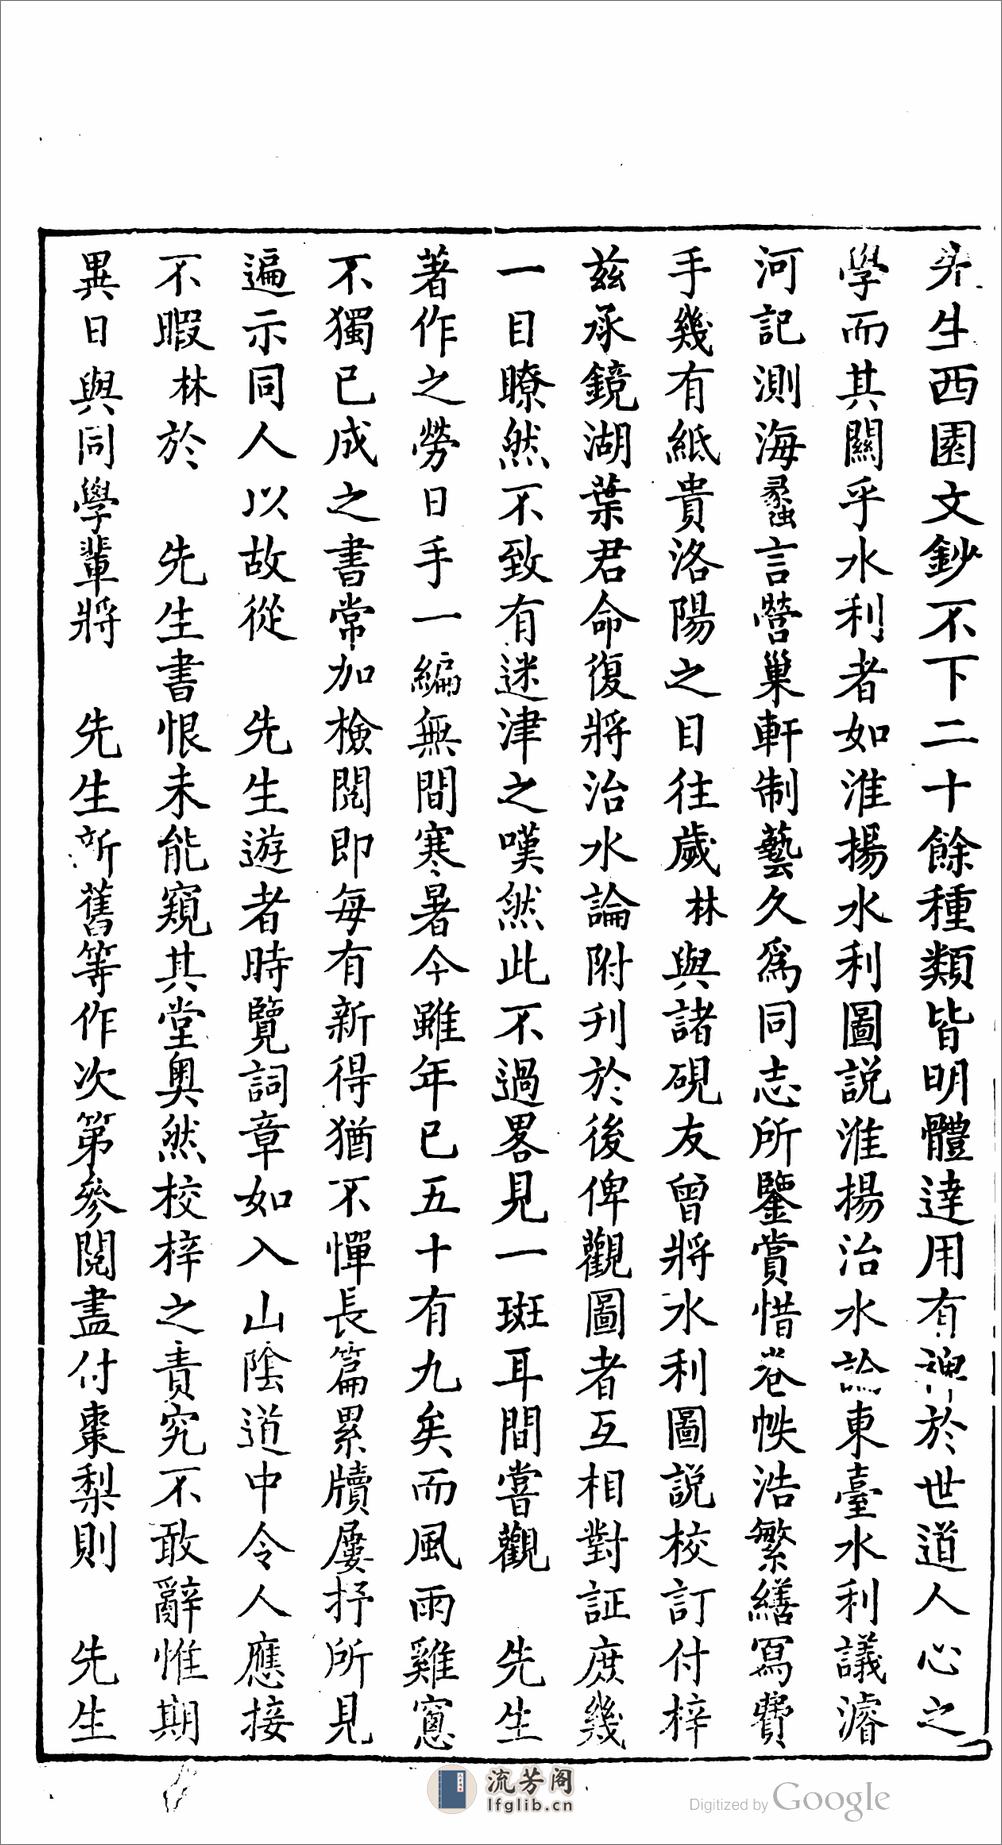 先生西園文鈔不下二十餘種類皆明體達用有裨於世道人心之
學而其關乎水利者如淮揚水利圖說淮揚治水論東臺水利議濬
河記測海蠡言營巢軒制藝久爲同志所鑒賞惜卷帙浩繁繕寫費
手幾有紙貴洛陽之目往歲林與諸硯友曾將水利圖說校訂付梓
茲承鏡湖葉君命復將治水論附刋於後俾觀圖者互相對証庶幾
一目瞭然不致有迷津之嘆然此不過畧見一斑耳間嘗觀 先生
著作之勞日手一編無間寒暑今雖年已五十有九矣而風雨雞窻
不獨已成之書常加檢閱即每有新得猶不憚長篇累牘屢抒所見
遍示同人以故從 先生遊者時覽詞章如入山陰道中令人應接
不暇林於 先生書恨未能窺其堂奧然校梓之責究不敢辭惟期
異日與同學輩將 先生新舊等作次第參閱盡付棗梨則 先生
流芳阁
lfglib.cn
Digitized by Google